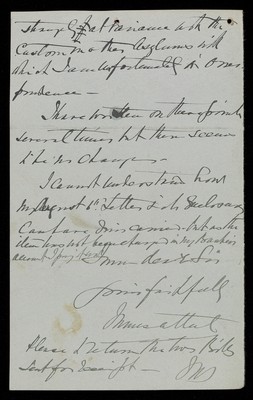 strangely at variance with the
custom in other Asylums with
which I am unfortunately in corres-
pondence —
I have written on these points
several times but there seems
to be no change —
I cannot understand how
my August 6th Letter & its Enclosures
can have miscarried but as the
item has not been charged in my Bankers
account I
I am dear Sir
Yours faithfully
Please to return the two Bills
sent for Receipt —